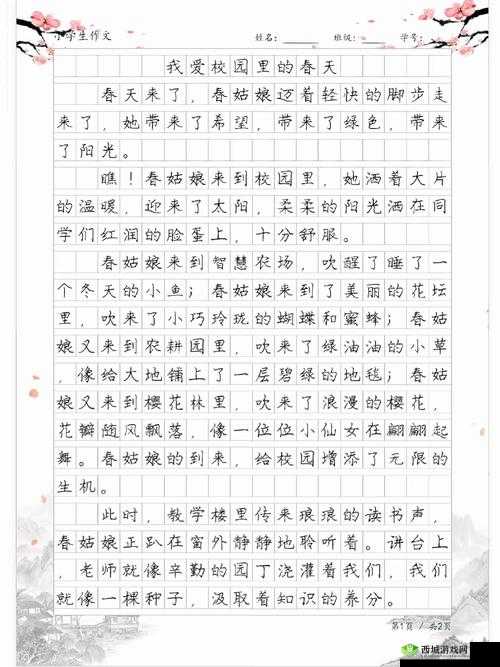 小学生作文 姓名：______ 班级：______ 学号：
我爱校园里的春天
春天来了，春姑娘迈着轻快的脚步走
来了，她带来了希望，带来了绿色，带来
了阳光。
瞧！春姑娘来到校园里，她洒着大片
的温暖，迎来了太阳，柔柔的阳光洒在同
学们红润的脸蛋上，十分舒服。
春姑娘来到智慧农场，吹醒了睡了一
个冬天的小鱼；春姑娘来到了美丽的花坛
里，吹来了小巧玲珑的蝴蝶和蜜蜂；春姑
娘又来到农耕园里，吹来了绿油油的小草
，像给大地铺上了一层碧绿的地毯；春姑
娘又来到樱花林里，吹来了浪漫的樱花，
花瓣随风飘落，像一位位小仙女在翩翩起
舞。春姑娘的到来，给校园增添了无限的
生机。
此时，教学楼里传来琅琅的读书声，
春姑娘正趴在窗外静静地聆听着。讲台上
，老师就像辛勤的园丁浇灌着我们，我们
就像一棵种子，汲取着知识的养分。
第1页 / 共2页
西城游戏网